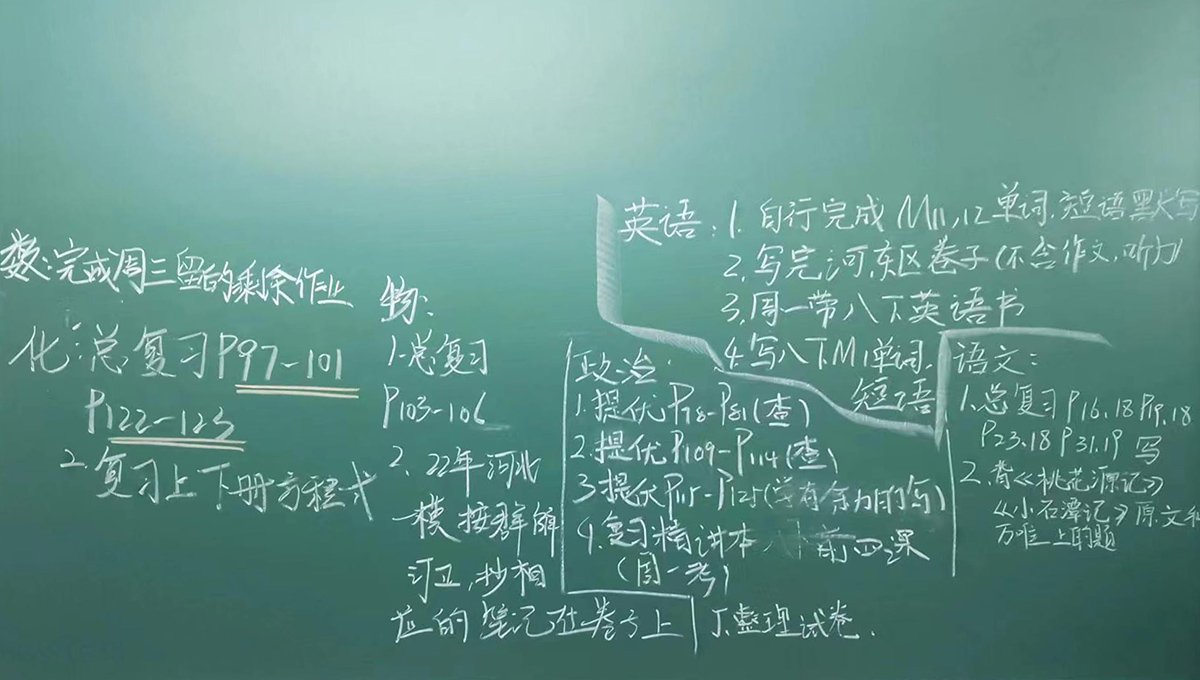 数:完成周三留的剩余作业
化:总复习P97-101
P122-123
2.复习上下册方程式
物:
1.总复习
P103-106
2、22年河北
一模 按群解
订正,抄相
应的笔记在卷子上
英语:1.自行完成M11,12单词.短语默写
2.写完河东区卷子(不含作文,听力)
3.周一带八下英语书
4.写八下M1单词.
短语
政治
1.提优P78-P81(查)
2.提优P109-P114(查)
3.提优P115-P125(学有余力的写)
4.复习精讲本 八下前四课
(周一考)
5.整理试卷.
语文:
1.总复习P16.18 P19.18
P23.18 P31.19 写
2.背《桃花源记》
《小石潭记》原文和
万唯上的题